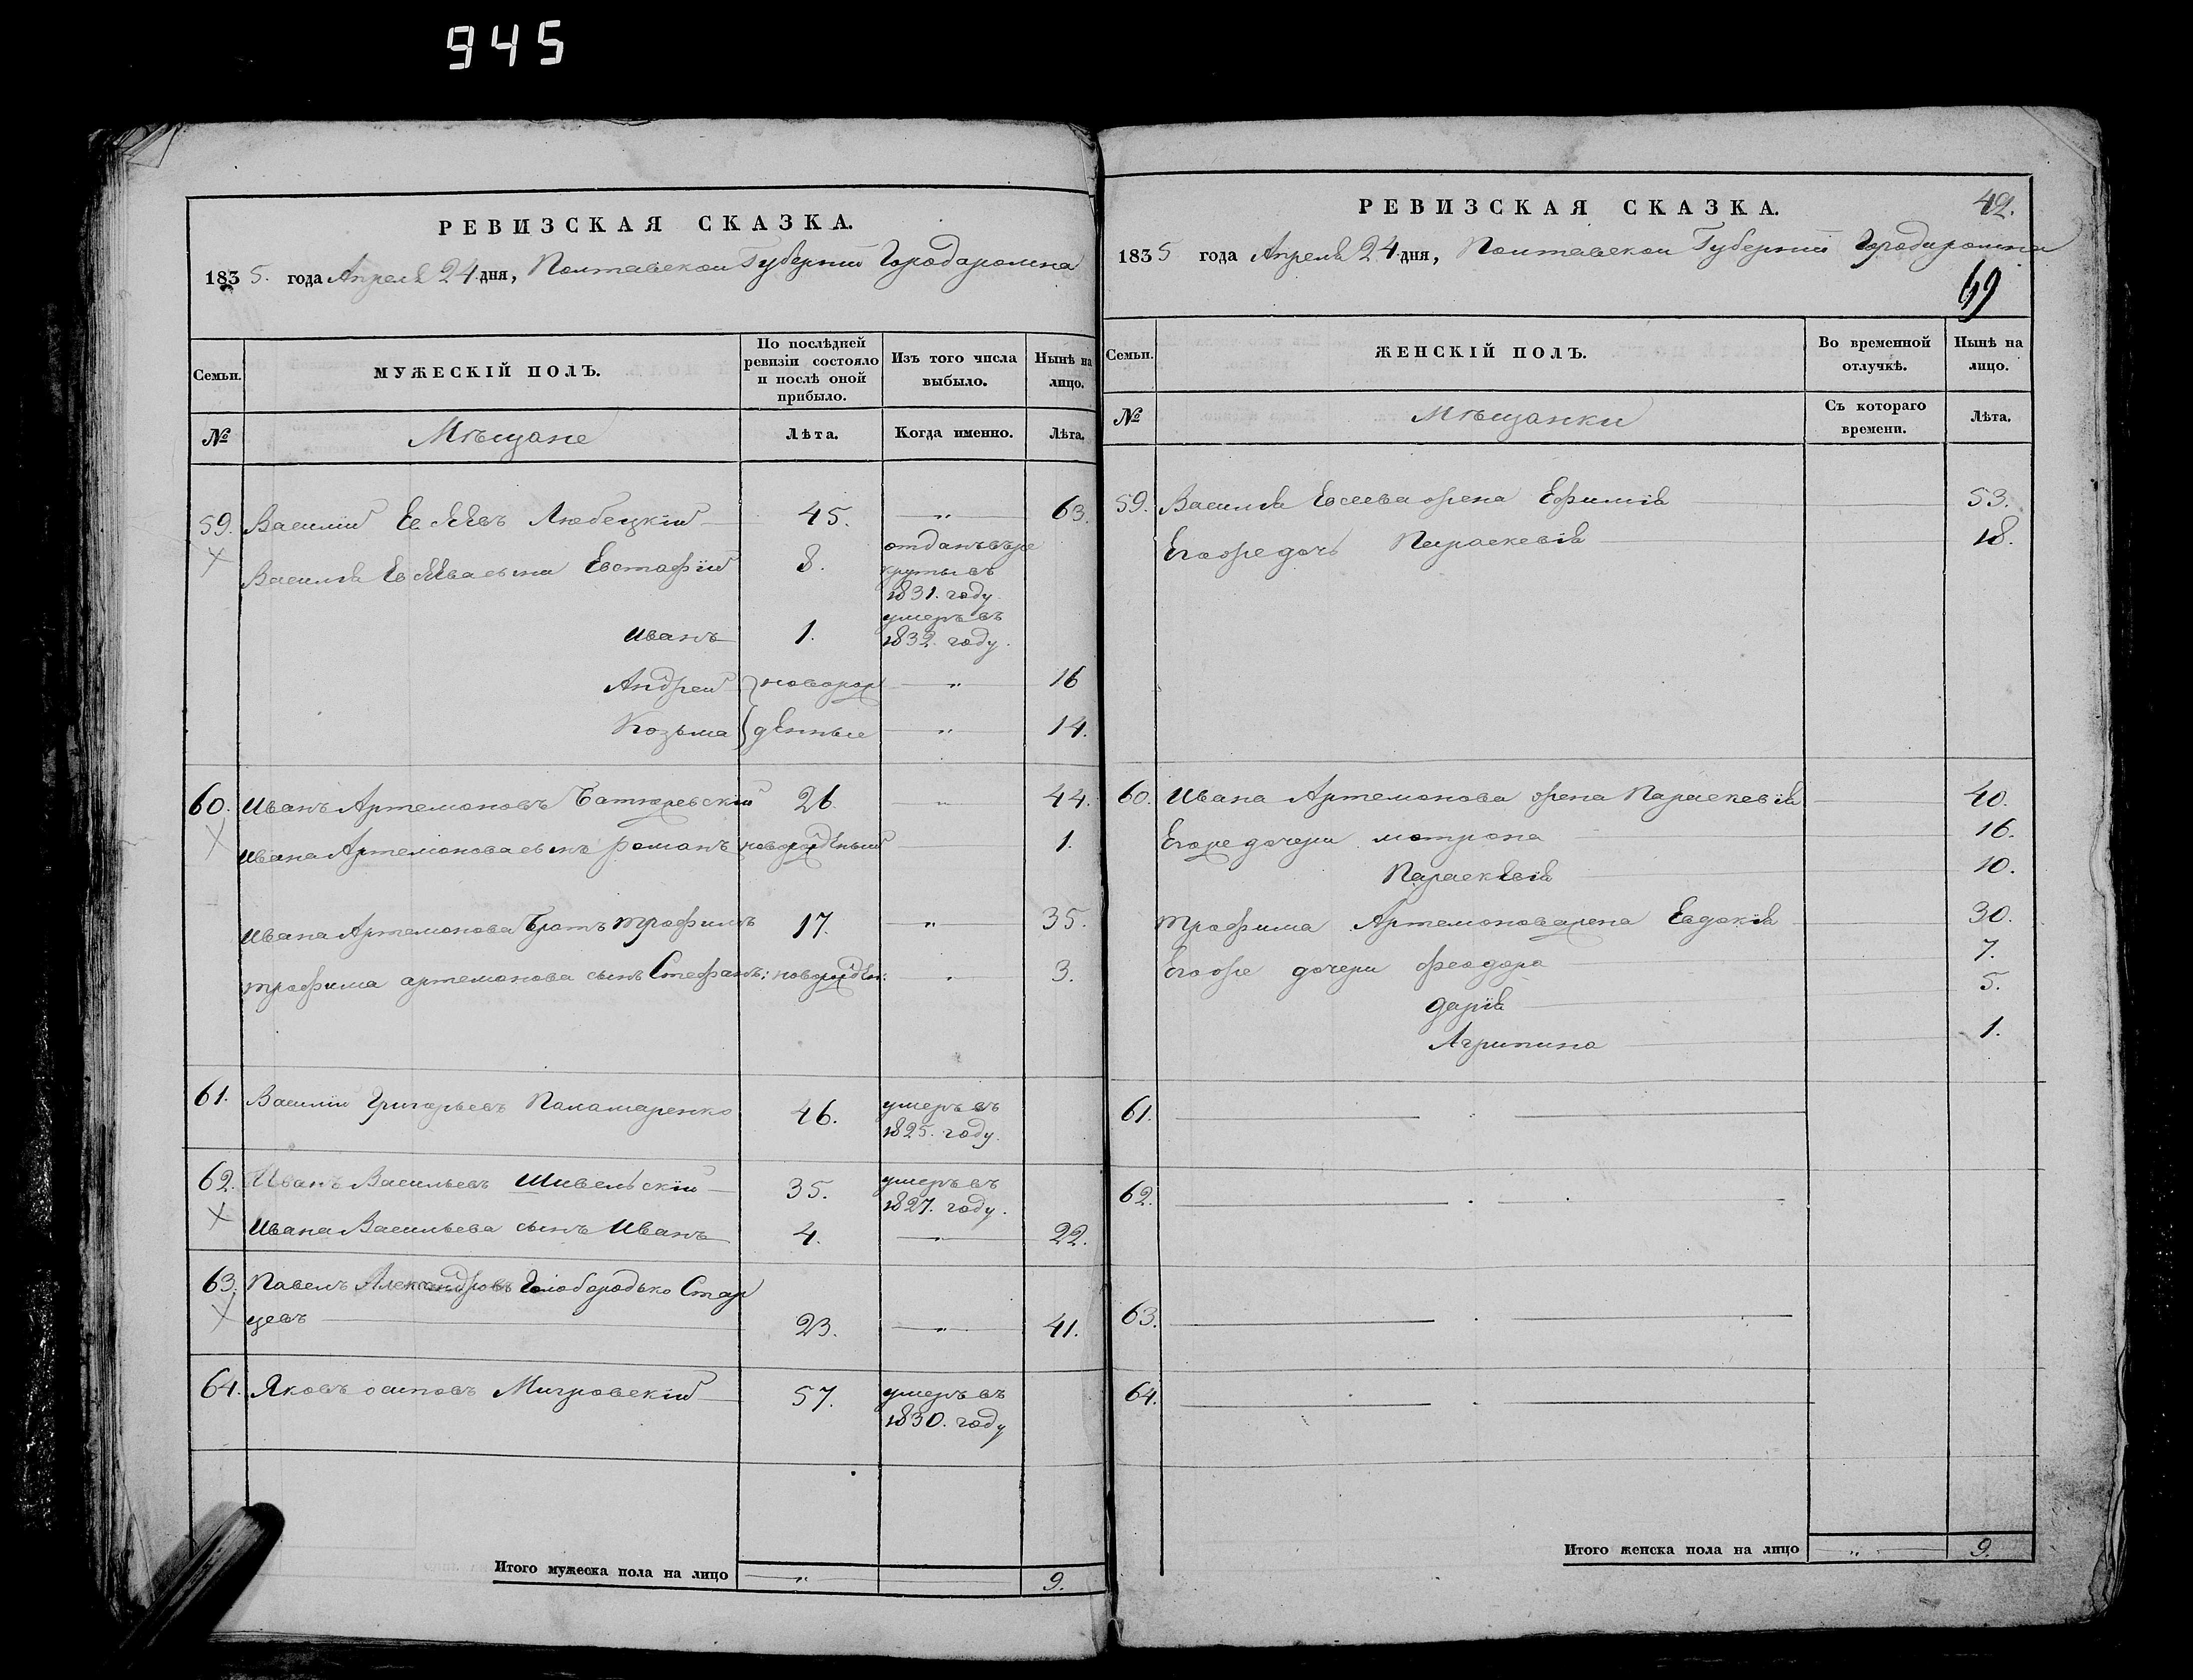 945
РЕВИЗСКАЯ СКАЗКА.
1835. года Апреля 24 дня, Полтавской Губернии Города Ромна
Семьи.
МУЖЕСКІЙ ПОЛЪ.
По послѣдней ревизіи состояло и послѣ оной прибыло.
Изъ того числа выбыло.
Нынѣ на лицо.
№
Мѣщане
Лѣта.
Когда именно.
Лѣта.
59. Василий Евсѣевъ Любецкій 45. „ 63.
Василія Евсѣева сына Евстафій 8. отданъ въ ре
круты въ
1831. году
Иванъ 1. умеръ въ
1832. году.
Андрей новорож „ 16
Козьма денные „ 14.
60. Иванъ Артемоновъ Батюревскій 26. „ 44.
Ивана Артемонова сынъ Романъ новорожденный 1.
Ивана Артемонова братъ Трофимъ 17. „ 35.
Трофима Артемонова сынъ Стефанъ: новорожден: „ 3.
61. Василій Григорьевъ Паламаренко 46. умеръ въ
1825. году.
62. Иванъ Васильевъ Шивельскій 35. умеръ въ
1827. году.
Ивана Васильева сынъ Иванъ 4. „ 22.
63. Павелъ Александровъ Голобородько Стар
цевъ 23. „ 41.
64. Яковъ Осиповъ Мигровскій 57. умеръ въ
1830. году
Итого мужеска пола на лицо „ 9.
РЕВИЗСКАЯ СКАЗКА.
42.
1835 года Апреля 24 дня, Полтавской Губернии Города Ромна
69
Семьи.
ЖЕНСКІЙ ПОЛЪ.
Во временной отлучкѣ.
Нынѣ на лицо.
№
Мѣщанки
Съ котораго времени.
Лѣта.
59. Василія Евсеева жена Ефимія 53.
Его же дочь Параскевія 18.
60. Ивана Артемонова жена Параскевія 40.
Его же дочери Мотрона 16.
Параскевія 10.
Трофима Артемонова жена Евдокія 30.
Его же дочери Феодора 7.
Дарія 5.
Агрипина 1.
61.
62.
63.
64.
Итого женска пола на лицо „ 9.